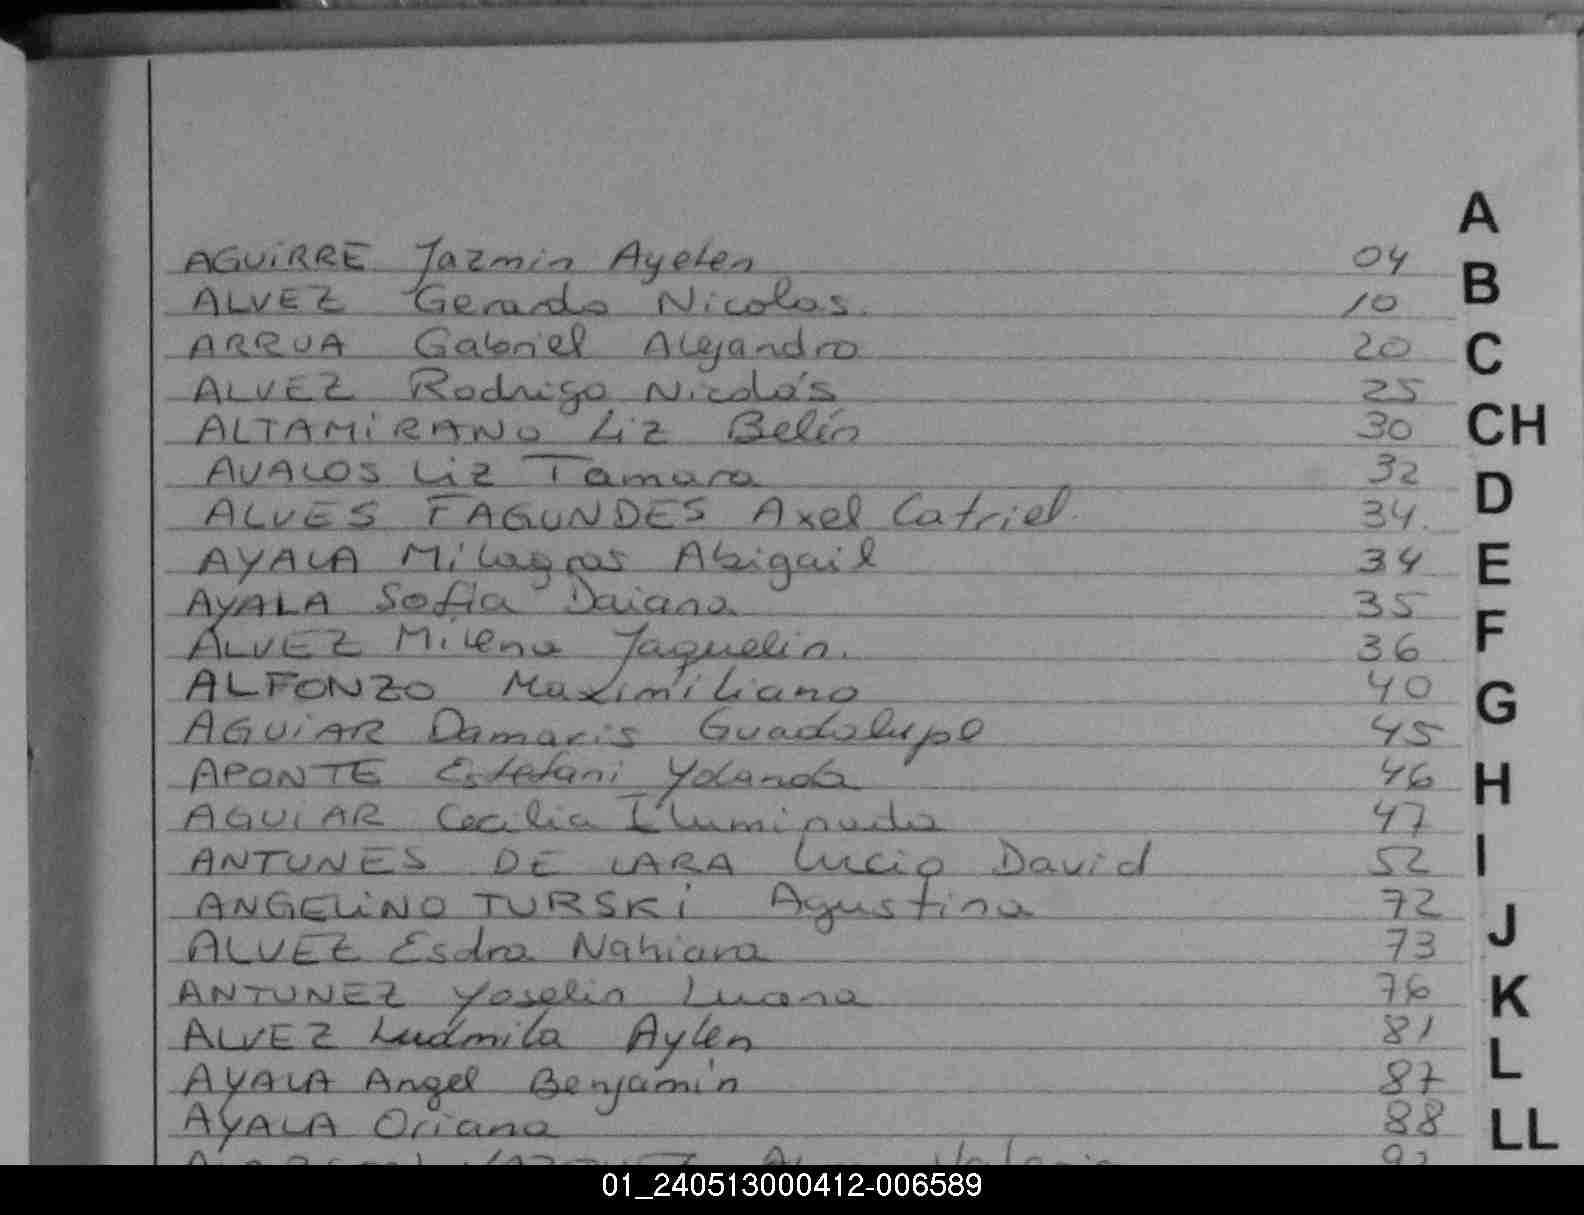 A
AGUIRRE Jazmin Ayelen 04
B
ALVEZ Gerardo Nicolas. 10
ARRUA Gabriel Alejandro 20
C
ALVEZ Rodrigo Nicolás 25
ALTAMIRANO Liz Belén 30
CH
AVALOS Liz Tamara 32
D
ALVES FAGUNDES Axel Catriel. 34.
AYALA Milagros Abigail 34
E
AYALA Sofia Daiana 35
F
ALVEZ Milena Jaquelin. 36
ALFONZO Maximiliano 40
G
AGUIAR Damaris Guadalupe 45
APONTE Estefani Yolanda 46
H
AGUIAR Cecilia Iluminada 47
ANTUNES DE LARA Lucio David 52
I
ANGELINO TURSKI Agustina 72
J
ALVEZ Esdra Nahiara 73
ANTUNEZ Yoselin Luana 76
K
ALVEZ Ludmila Aylen 81
L
AYALA Angel Benjamín 87
AYALA Oriana 88
LL
01_240513000412-006589